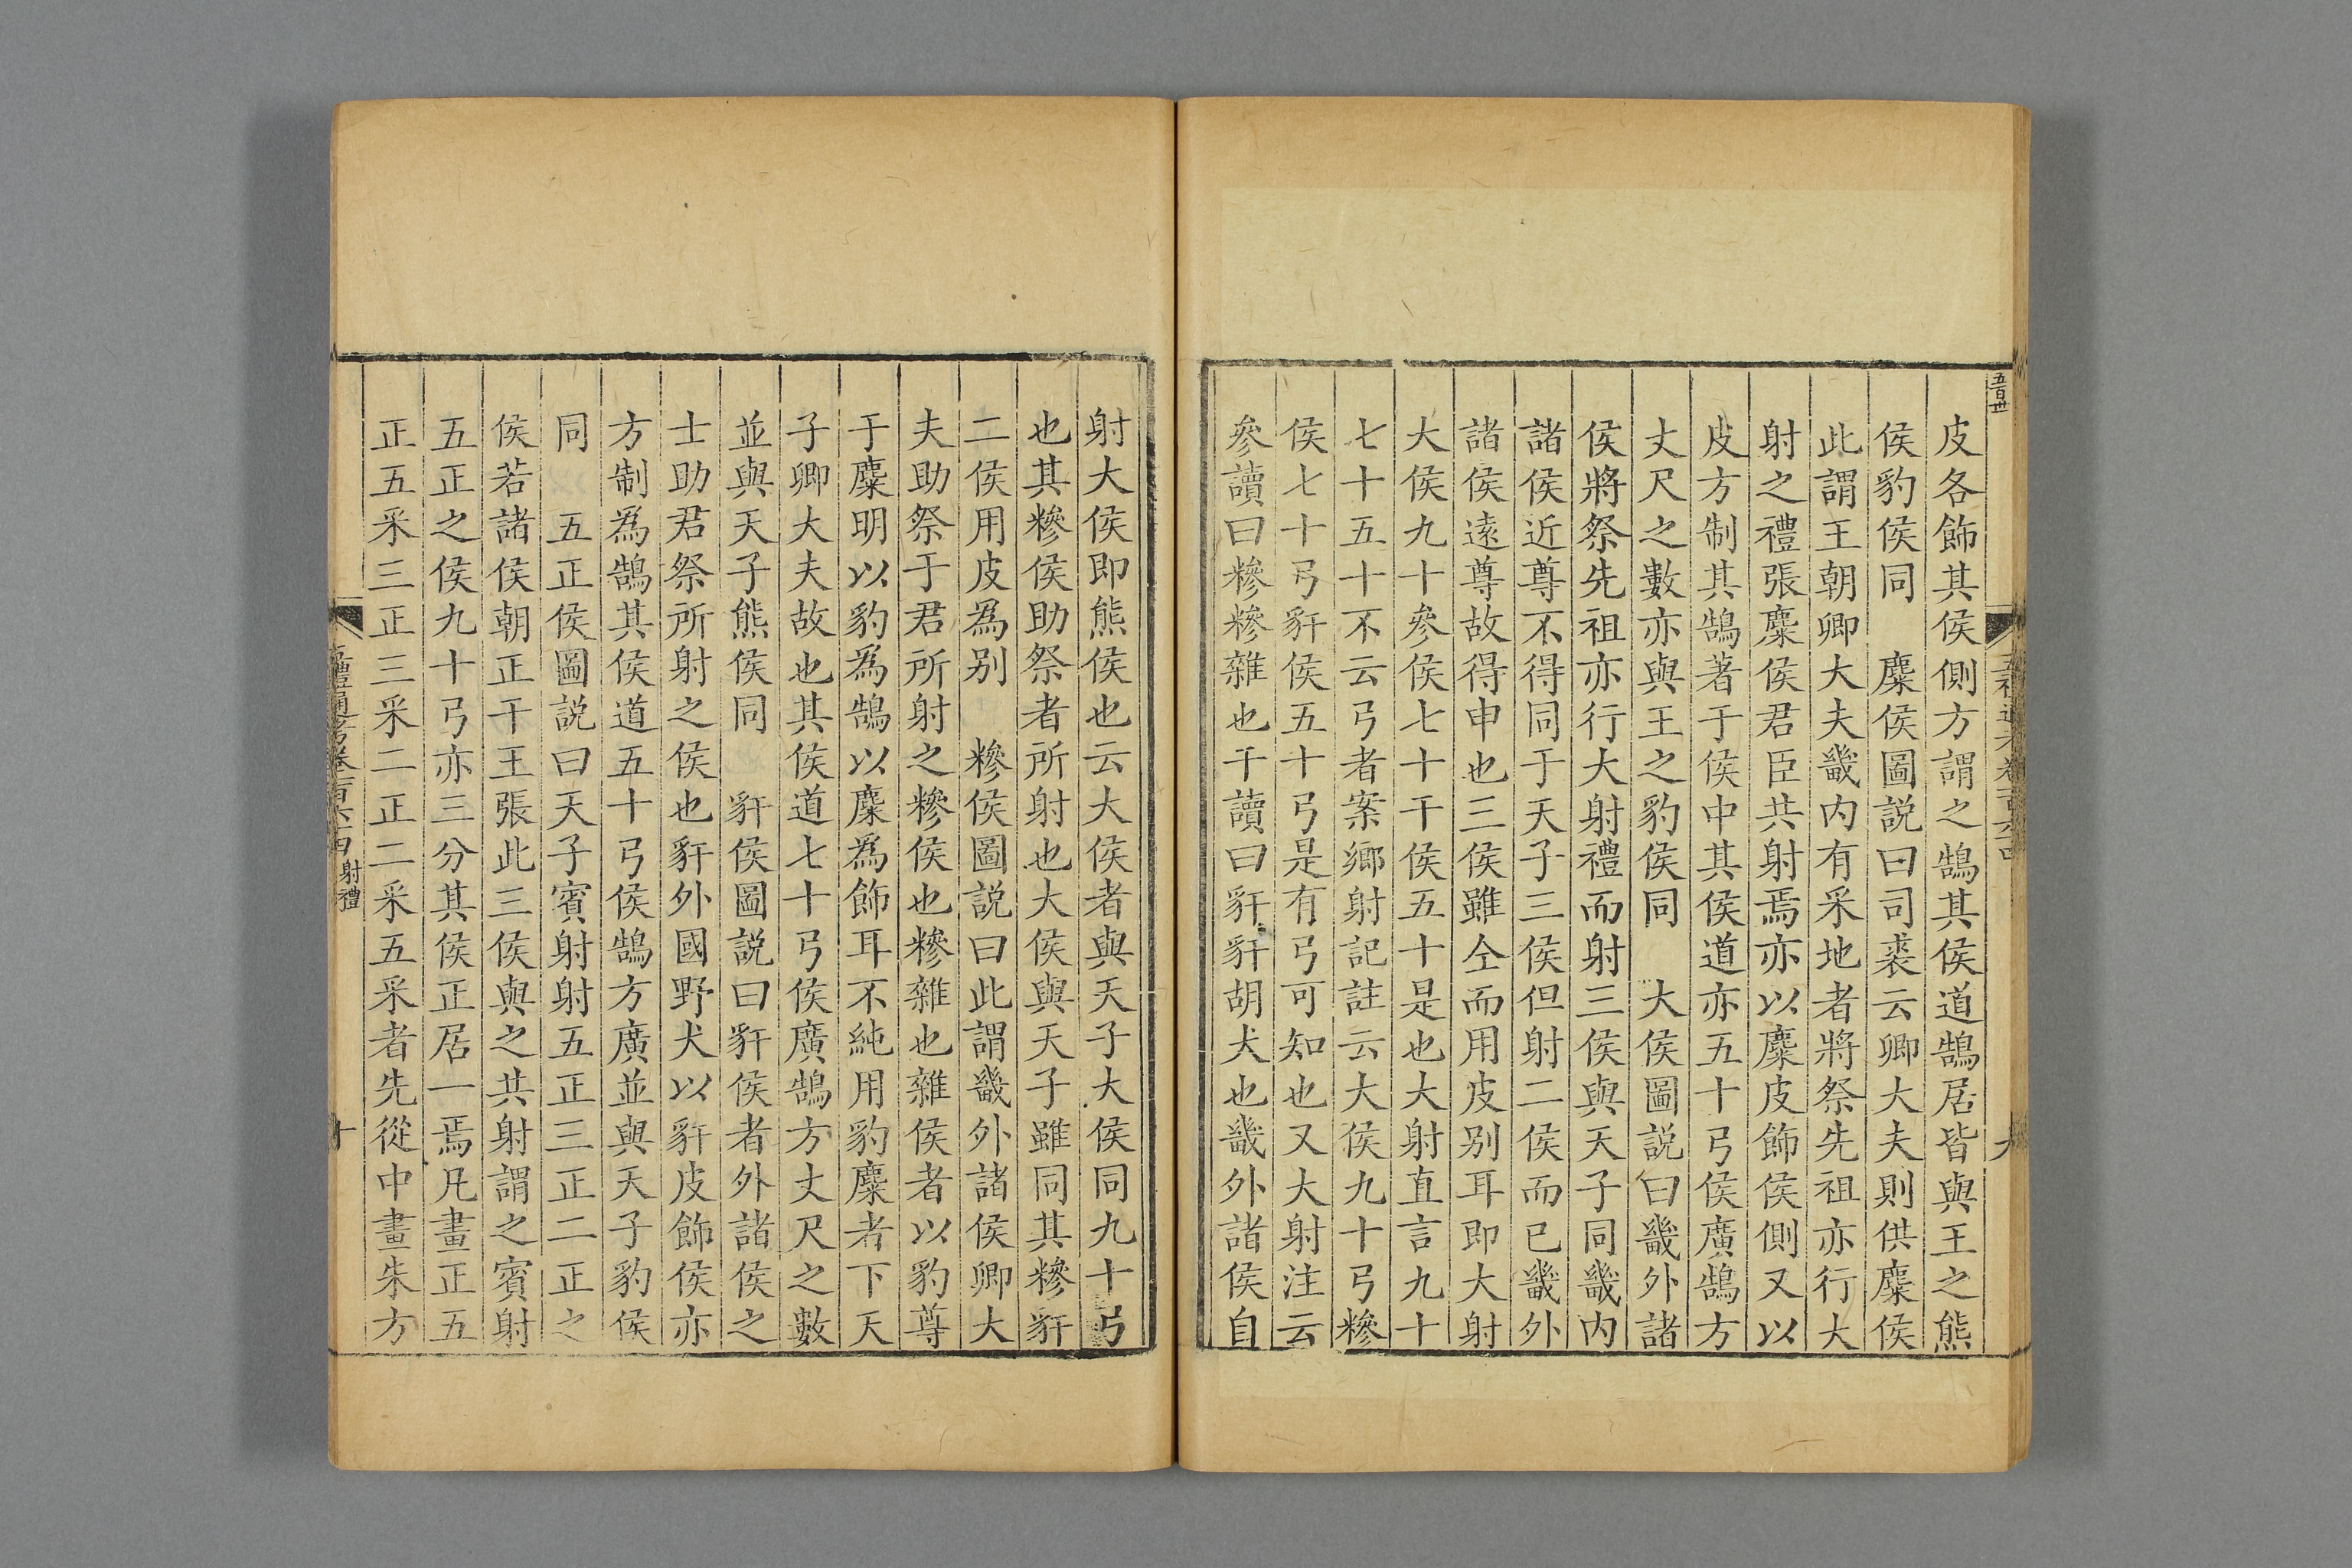 皮各飾其侯側方謂之鵠其侯道鵠居皆與王之熊
侯豹侯同　麋侯圖説曰司裘云卿大夫則供麋侯
此謂王朝卿大夫畿内有采地者將祭先祖亦行大
射之禮張麋侯君臣共射焉亦以麋皮飾侯側又以
皮方制其鵠著于侯中其侯道亦五十弓侯廣鵠方
丈尺之數亦與王之豹侯同　大侯圖説曰畿外諸
侯將祭先祖亦行大射禮而射三侯與天子同畿内
諸侯近尊不得同于天子三侯但射二侯而已畿外
諸侯遠尊故得申也三侯雖仝而用皮别耳即大射
大侯九十參侯七十干侯五十是也大射直言九十
七十五十不云弓者案鄉射記註云大侯九十弓糝
侯七十弓豻侯五十弓是有弓可知也又大射注云
參讀曰糝糝雜也干讀曰豻豻胡犬也畿外諸侯自
射大侯即熊侯也云大侯者與天子大侯同九十弓
也其糝侯助祭者所射也大侯與天子雖同其糝豻
二侯用皮爲别　糝侯圖説曰此謂畿外諸侯卿大
夫助祭于君所射之糝侯也糝雜也雜侯者以豹尊
于麋明以豹爲鵠以麋爲飾耳不純用豹麋者下天
子卿大夫故也其侯道七十弓侯廣鵠方丈尺之數
並與天子熊侯同　豻侯圖説曰豻侯者外諸侯之
士助君祭所射之侯也豻外國野犬以豻皮飾侯亦
方制爲鵠其侯道五十弓侯鵠方廣並與天子豹侯
同　五正侯圖説曰天子賓射射五正三正二正之
侯若諸侯朝正于王張此三侯與之共射謂之賓射
五正之侯九十弓亦三分其侯正居一焉凡畫正五
正五采三正三采二正二采五采者先從中畫朱方
五禮通考卷一百六十四 射禮
十